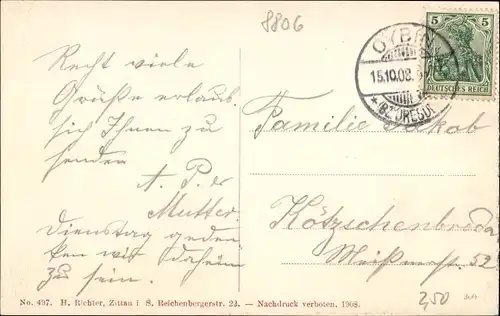 8806
5 5
DEUTSCHES REICH
OYBIN
15.10.08.
* (BZ. DRESD.)
Recht viele
Grüße erlaubt
sich Ihnen zu
senden
A. P. 
Mutter.
Dienstag geden
ken wir daheim
zu sein.
Familie Jakob
Kötzschenbroda
Meißnerstr. 52
2,50
No. 497. H. Richter, Zittau i S. Reichenbergerstr. 22. — Nachdruck verboten. 1908.